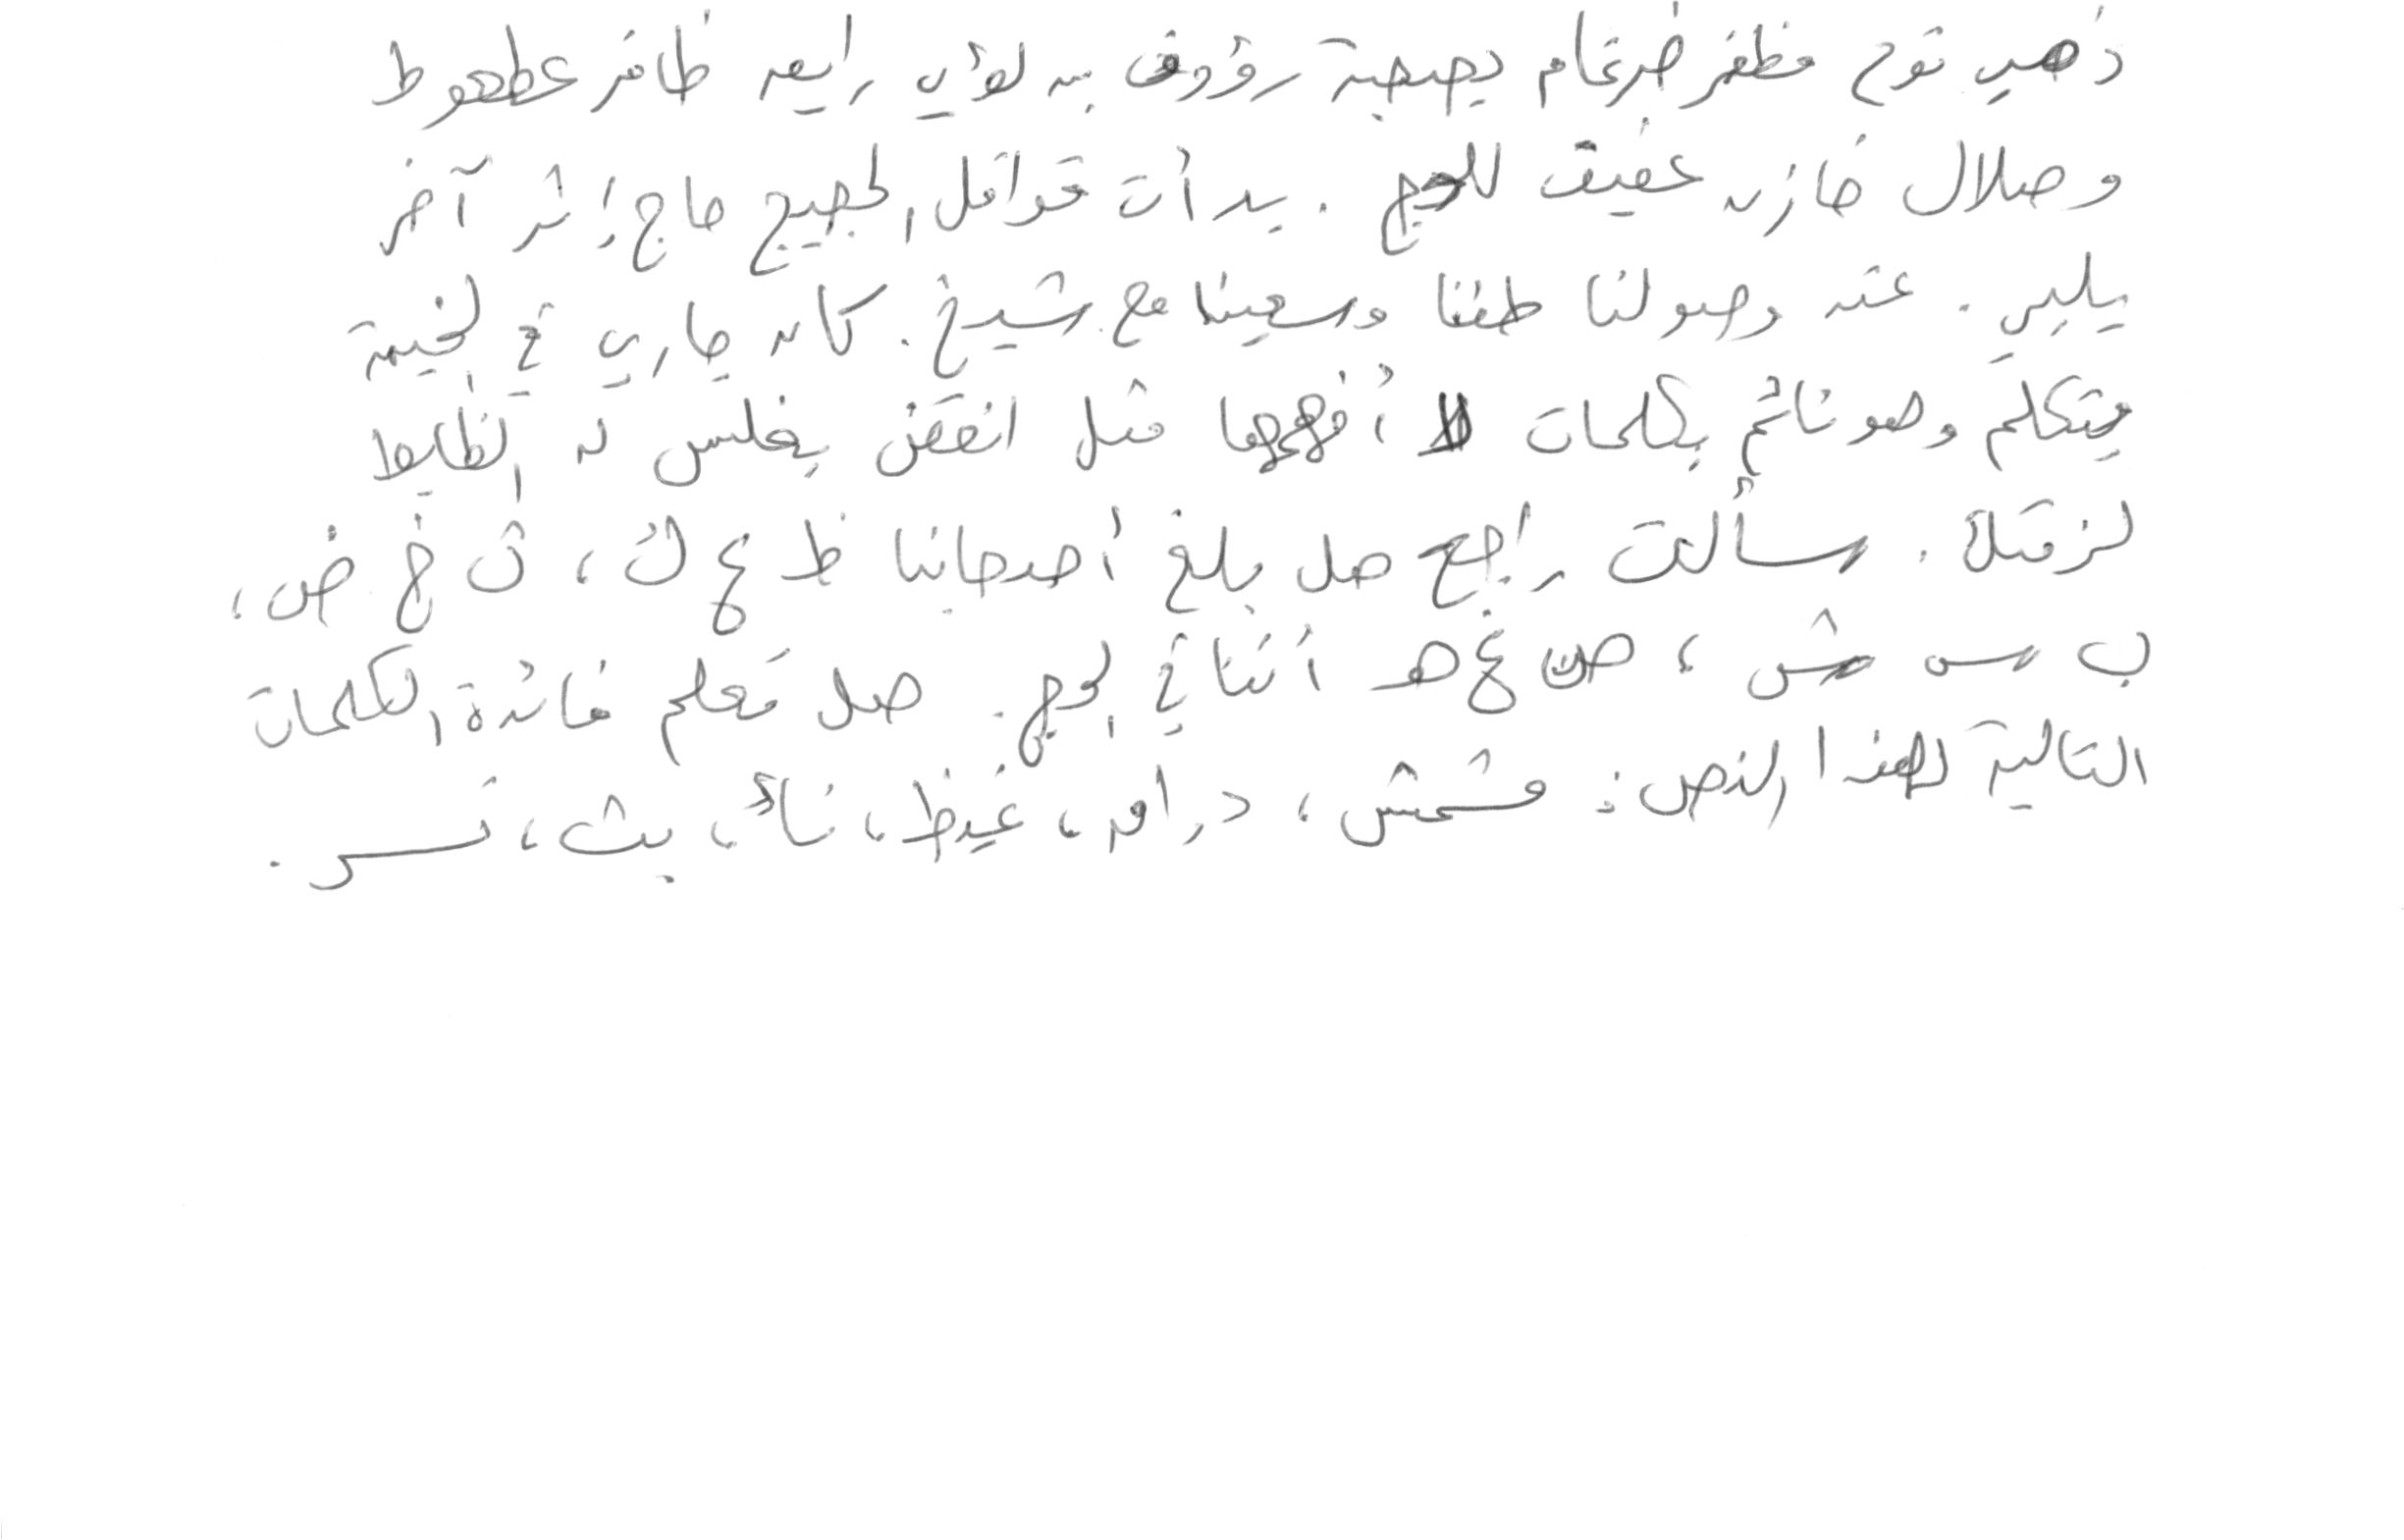 ذهب نوح مظفر ضرغام بصحبة رؤوف بن لؤي رابعه ظافر عطعوط
وهلال خازن عفيف للحج . بدأت قوافل الحجيج حاج إثر آخر
يلبي . عند وصولنا طفنا وسعينا مع شيخ . كان جاري في الخيمة
يتكلم وهو نائم بكلمات لا أفهمها مثل انقض بغلس لن الظابط
لزقتلا . سألت راجح هل بلغ أصحابنا ظ غ ك ، ث خ ض ،
ب س ش ، ص غ ه أثنائي الحج . هل تعلم فائدة الكلمات
التالية لهذا النص : مشمش ، دراق ، غيظ ، نأ ، بث ، نسر .